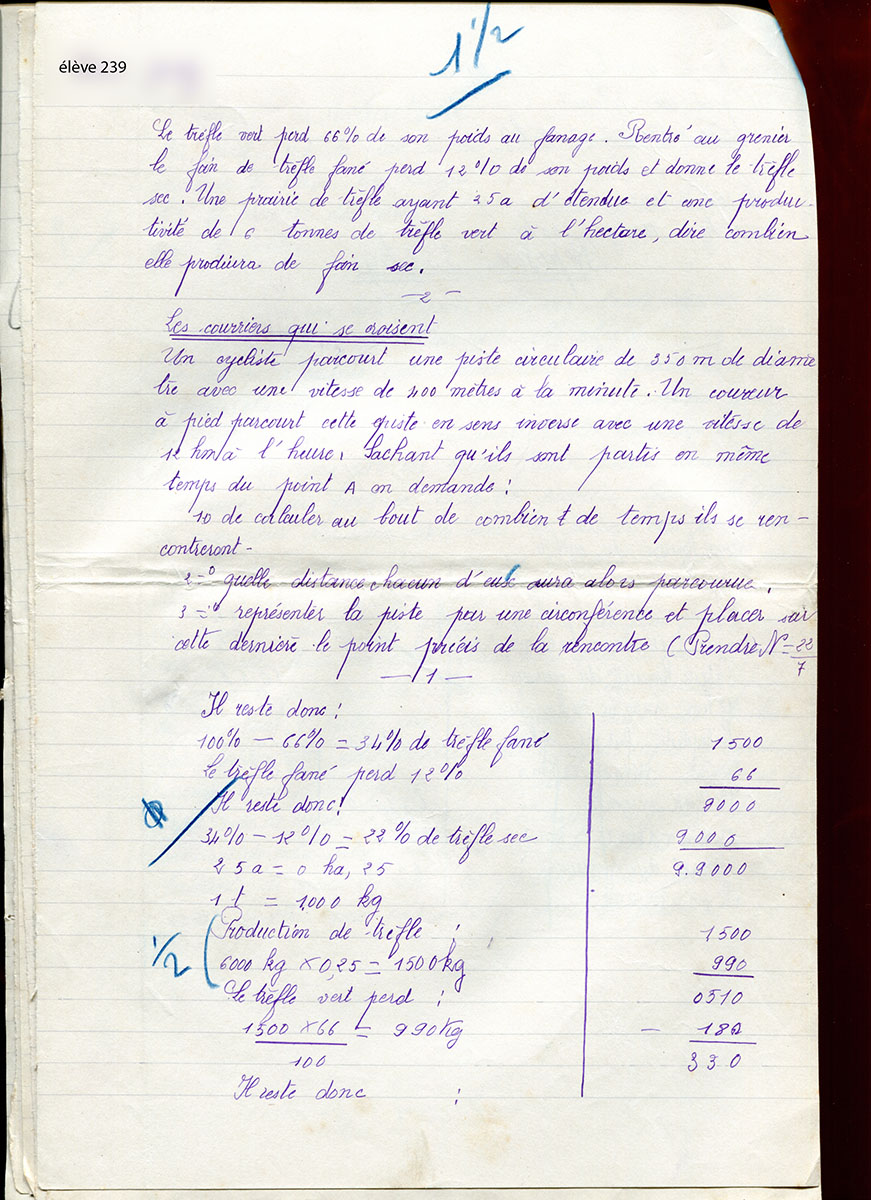 1 1/2
élève 239
Le trèfle vert perd 66% de son poids au fanage. Rentré au grenier
le foin de trèfle fané perd 12% de son poids et donne le trèfle
sec. Une prairie de trèfle ayant 25a d'étendue et une produc-
tivité de 6 tonnes de trèfle vert à l'hectare, dire combien
elle produira de foin sec.
— 2 —
Les courriers qui se croisent
Un cycliste parcourt une piste circulaire de 350m de diamè
tre avec une vitesse de 400 mètres à la minute. Un coureur
à pied parcourt cette piste en sens inverse avec une vitesse de
12 km à l'heure. Sachant qu'ils sont partis en même
temps du point A on demande :
1º de calculer au bout de combien de temps ils se ren-
contreront-
2=º quelle distance chacun d'eux aura alors parcourue.
3=º représenter la piste par une circonférence et placer sur
cette dernière le point précis de la rencontre (Prendre N=22/7
— 1 —
Il reste donc :
100% — 66% = 34% de trèfle fané
Le trèfle fané perd 12%
Il reste donc :
34% — 12% = 22% de trèfle sec
25a = 0 ha, 25
1 t = 1000 kg
1/2
Production de trèfle :
6000 kg × 0,25 = 1500 kg
Le trèfle vert perd :
1500 × 66 = 990 Kg
100
Il reste donc :
1500
66
9000
9000
9.9000
1500
990
0510
— 180
330